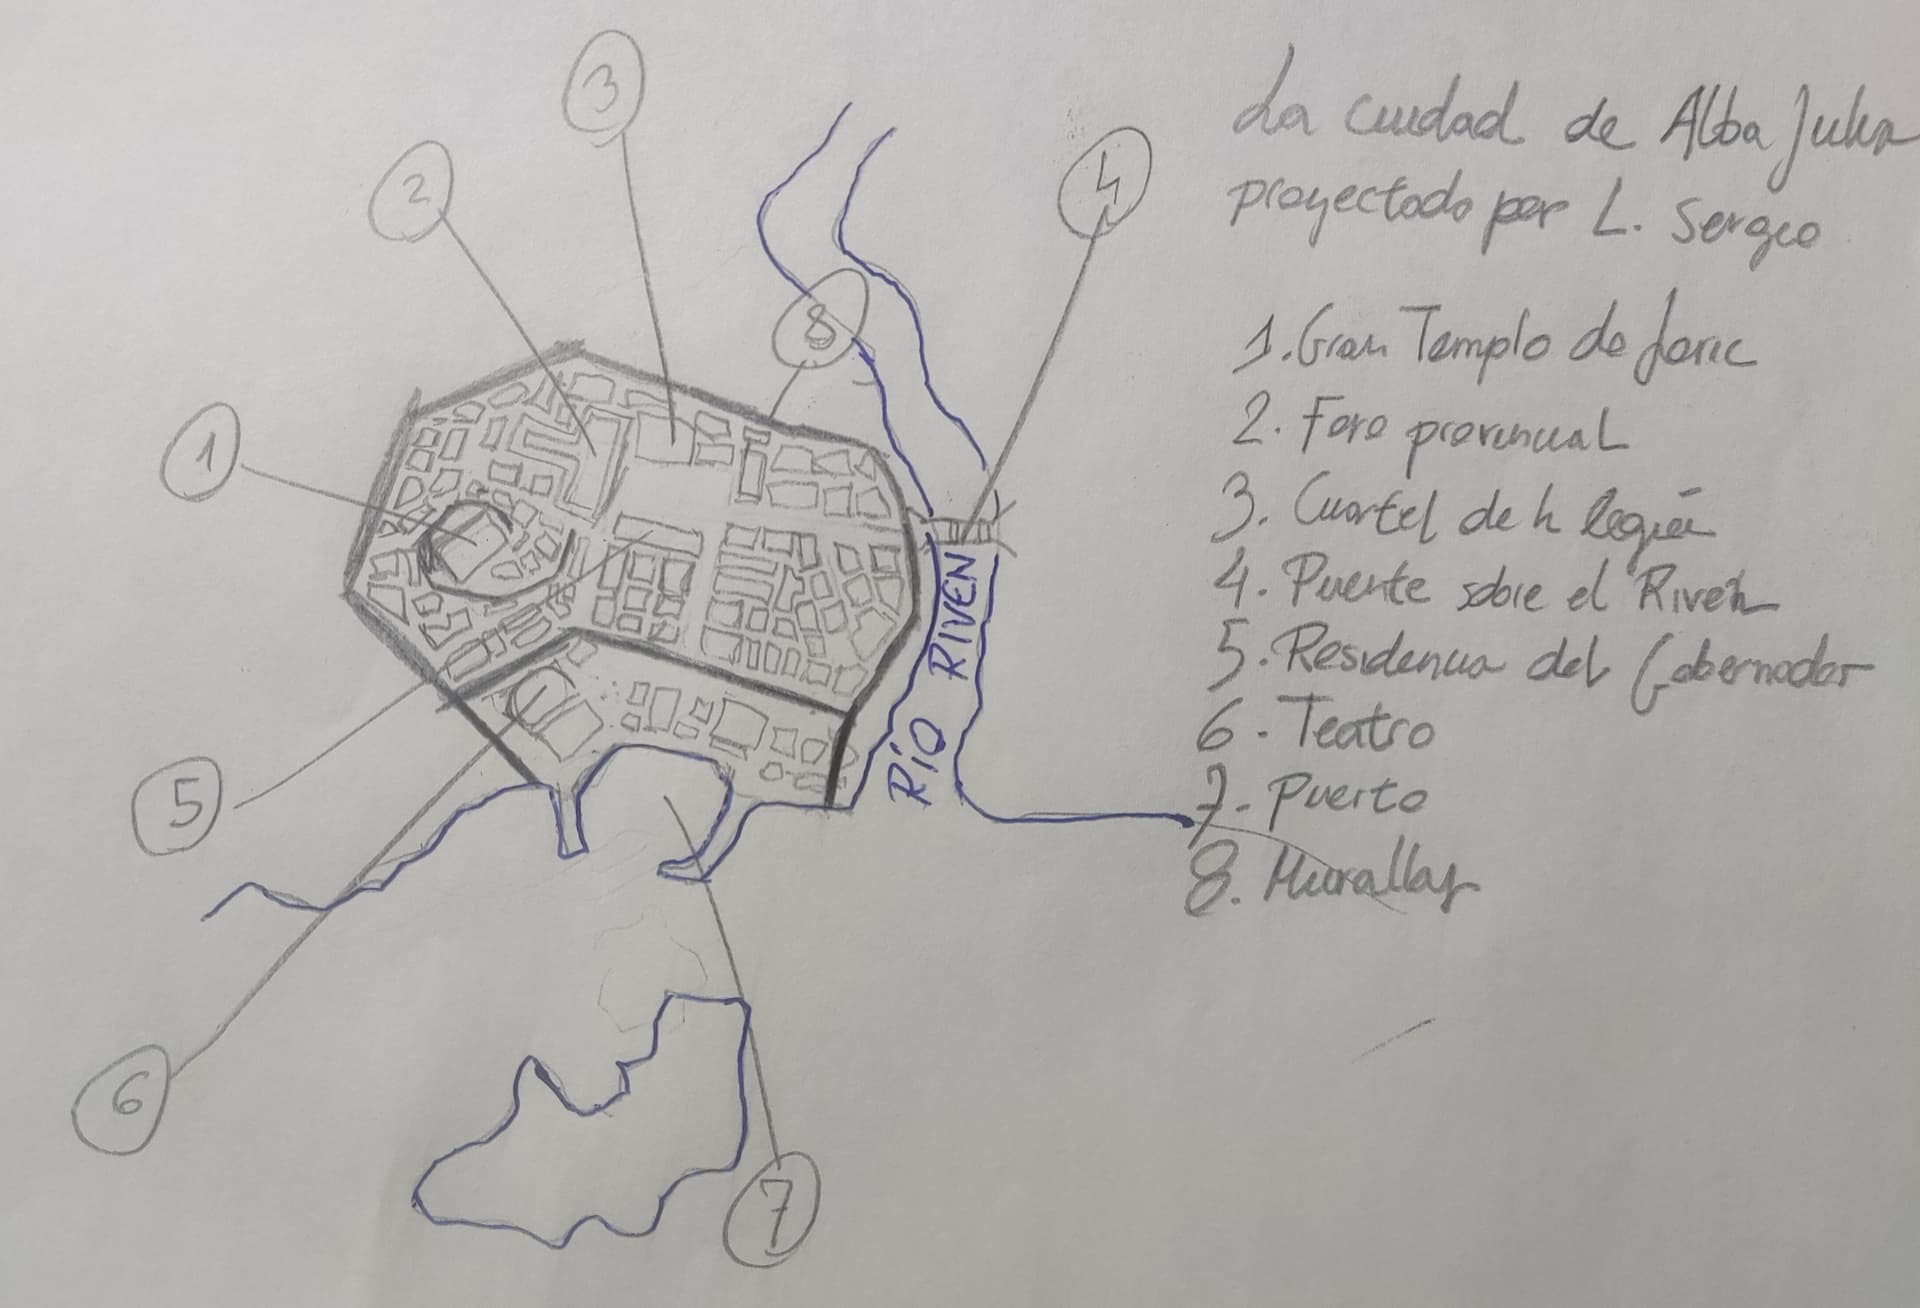 3
2
4
8
1
5
6
7
RÍO RIVEN
La ciudad de Alba Julia
proyectado por L. Sergio
1. Gran Templo de
2. Foro provincial
3. Cuartel de la legión
4. Puente sobre el Riven
5. Residencia del Gobernador
6. Teatro
7. Puerto
8. Murallas